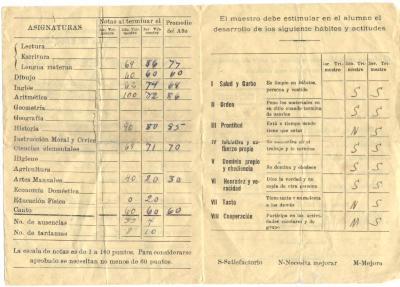 ASIGNATURAS
Notas al terminar el
Promedio del Año
1er. Trimestre
2do. Trimestre
Lectura
Escritura
Lengua materna 69 86 77
Dibujo 60 60 60
Inglés 74 68
Aritmética 100 72 86
Geometría
Geografía
Historia 90 80 85
Instrucción Moral y Cívica
Ciencias elementales 69 71 70
Higiene
Agricultura
Artes Manuales 40 20 30
Economía Doméstica
Educación Física 0 20
Canto 60 60 60
No. de ausencias 7
No. de tardanzas 8 10
La escala de notas es de 1 a 100 puntos. Para considerarse
aprobado se necesitan no menos de 60 puntos.
El maestro debe estimular en el alumno el
desarrollo de los siguiente hábitos y actitudes
1er. Trimestre
2do. Trimestre
3er. Trimestre
I Salud y Garbo Es limpio en hábitos, persona y vestido S S
II Orden Pone los materiales en su sitio cuando termina de usarlos S S
III Prontitud Está a tiempo donde tiene que estar N S
IV Iniciativa y esfuerzo propio S S
V Dominio propio y obediencia Se domina y obedece S S
VI Honradez y veracidad Dice la verdad y no copia de otra persona S S
VII Tacto Tiene tacto a los demás N S
VIII Cooperación Participa en las actividades escolares y de grupo M S
S-Satisfactorio N-Necesita mejorar M-Mejora